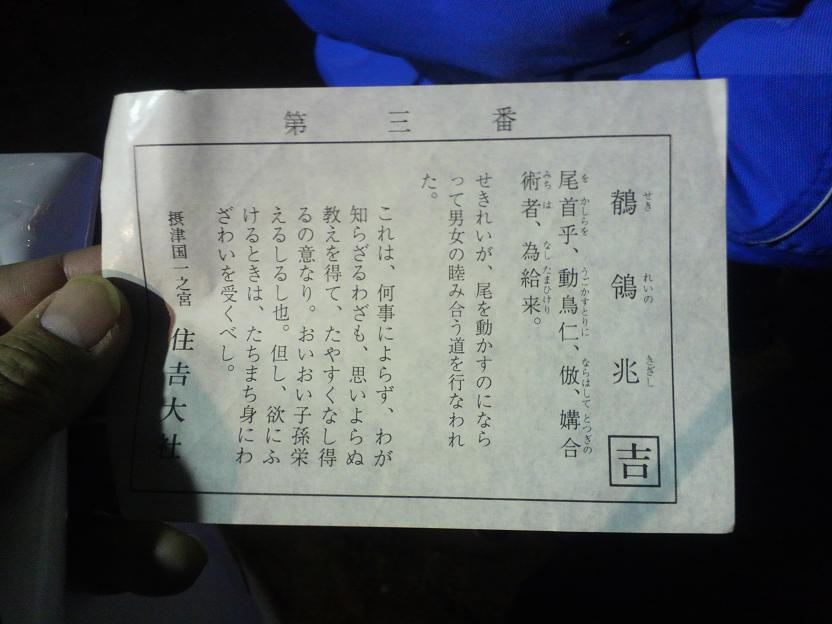 第三番
鶺鴒兆 吉
せき れいの きざし
尾首乎、動鳥仁、倣、媾合
を かしらを うごかすとりに ならはして とつぎの
術者、為給来。
みちは なしたまひけり
せきれいが、尾を動かすのになら
って男女の睦み合う道を行なわれ
た。
これは、何事によらず、わが
知らざるわざも、思いよらぬ
教えを得て、たやすくなし得
るの意なり。おいおい子孫栄
えるしるし也。但し、欲にふ
けるときは、たちまち身にわ
ざわいを受くべし。
摂津国一之宮 住吉大社